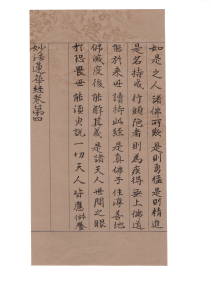 如是之人諸佛所歎是則勇猛是則精進
是名持戒行頭陀者則為疾得無上佛道
能於來世讀持此經是真佛子住淳善地
佛滅度後能解其義是諸天人世間之眼
於恐畏世能須臾說一切天人皆應供養
妙法蓮華經卷第四